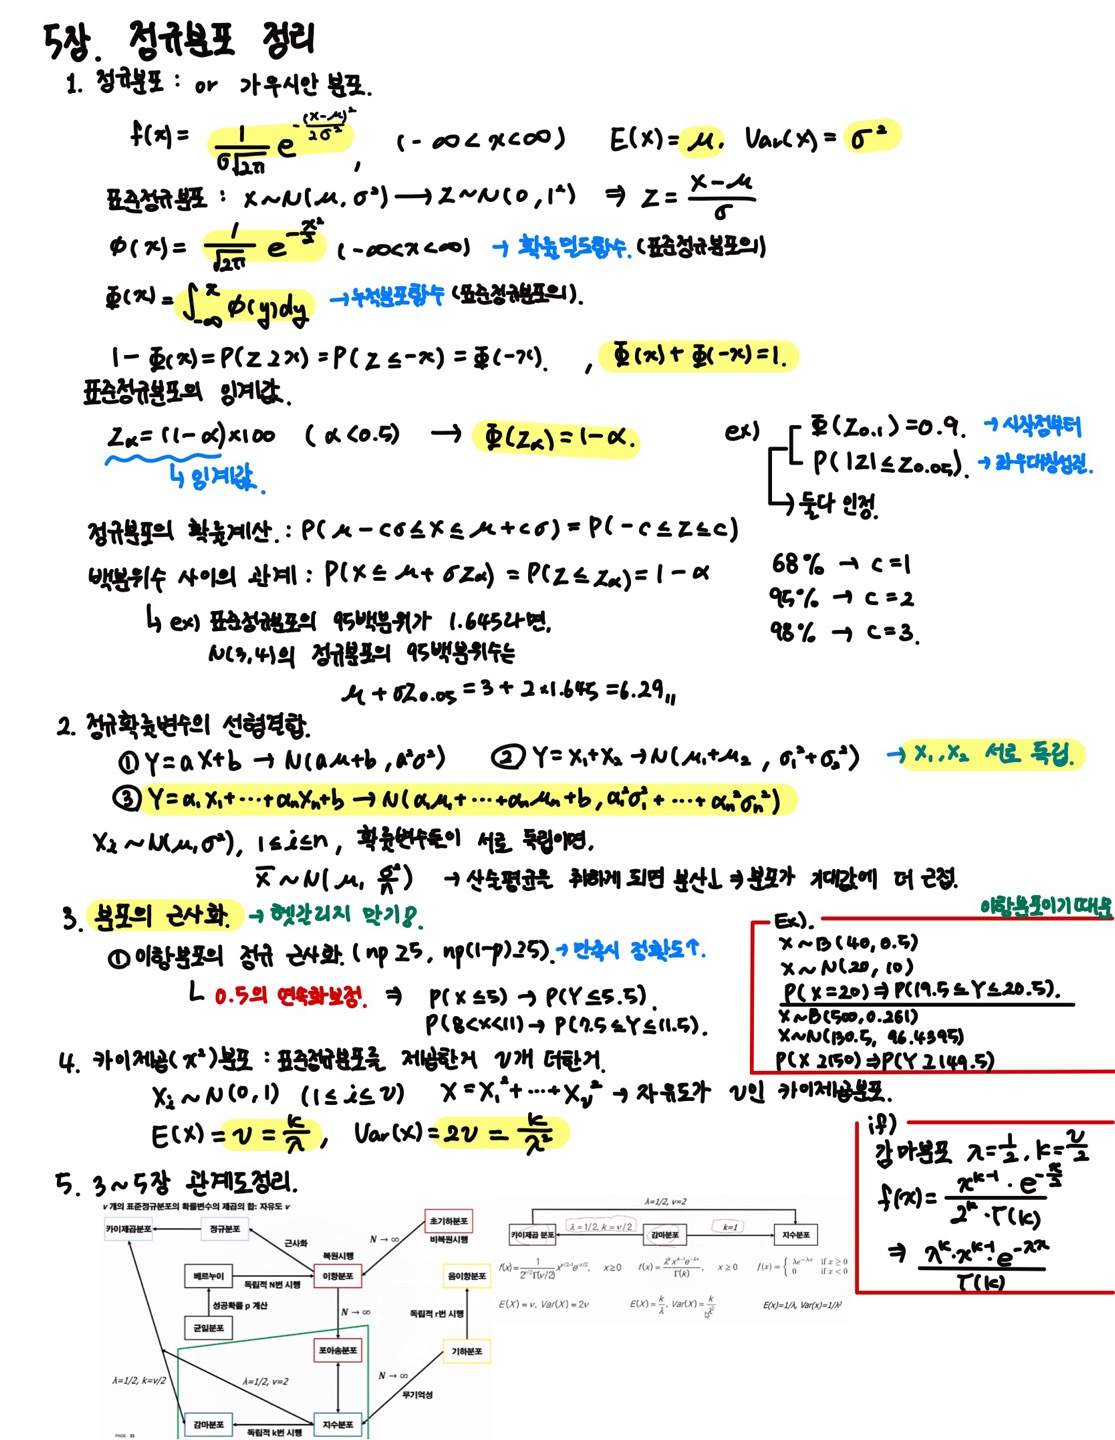 5장. 정규분포 정리
1. 정규분포 : or 가우시안 분포.
f(x) = 1/(σ√2π) e^(-(x-μ)²/2σ²), (-∞<x<∞) E(X)=μ. Var(X)=σ²
표준정규분포 : X~N(μ, σ²) → Z~N(0, 1²) ⇒ Z = (X-μ)/σ
φ(x) = 1/√2π e^(-x²/2) (-∞<x<∞) → 확률밀도함수. (표준정규분포의)
Φ(x) = ∫_-∞^x φ(y)dy → 누적분포함수 (표준정규분포의).
1-Φ(x) = P(Z≥x) = P(Z≤-x) = Φ(-x). , Φ(x)+Φ(-x)=1.
표준정규분포의 임계값.
Zα = (1-α)×100 (α<0.5) → Φ(Zα) = 1-α.
↳ 임계값.
ex) Φ(Z0.1) = 0.9. → 시작점부터
P(|Z| ≤ Z0.05). → 좌우대칭성질.
→ 둘다 인정.
정규분포의 확률계산. : P(μ-cσ ≤ X ≤ μ+cσ) = P(-c ≤ Z ≤ c)
68% → c=1
95% → c=2
98% → c=3.
백분위수 사이의 관계 : P(X ≤ μ+σZα) = P(Z ≤ Zα) = 1-α
↳ ex) 표준정규분포의 95백분위가 1.645라면,
N(3,4)의 정규분포의 95백분위수는
μ+σZ0.05 = 3+2×1.645 = 6.29〃
2. 정규확률변수의 선형결합.
① Y=aX+b → N(aμ+b, a²σ²) ② Y=X₁+X₂ → N(μ₁+μ₂, σ₁²+σ₂²) → X₁, X₂ 서로 독립.
③ Y=a₁X₁+⋯+anXn+b → N(a₁μ₁+⋯+anμn+b, a₁²σ₁²+⋯+an²σn²)
Xi ~ N(μ, σ²), 1≤i≤n, 확률변수들이 서로 독립이면,
X̄ ~ N(μ, σ²/n) → 산술평균은 취하게 되면 분산↓ ⇒ 분포가 기대값에 더 근접.
3. 분포의 근사화. → 헷갈리지 말기!
① 이항분포의 정규 근사화. (np≥5, np(1-p)≥5). → 만족시 정확도↑.
└ 0.5의 연속화보정. ⇒ P(X≤5) → P(Y≤5.5).
P(8<X<11) → P(7.5≤Y≤11.5).
이항분포이기 때문
Ex).
X~B(40, 0.5)
X~N(20, 10)
P(X=20) ⇒ P(19.5≤Y≤20.5).
X~B(500, 0.261)
X~N(130.5, 96.4395)
P(X≥150) ⇒ P(Y≥149.5)
4. 카이제곱(χ²)분포 : 표준정규분포를 제곱한거 ν개 더한거.
Xi ~ N(0, 1) (1≤i≤ν) X=X₁²+⋯+Xν² → 자유도가 ν인 카이제곱분포.
E(X) = ν = k/λ, Var(X) = 2ν = k/λ²
if)
감마분포 λ=1/2, k=ν/2
f(x) = x^(k-1)·e^(-x/2) / 2^k·Γ(k)
⇒ λ^k·x^(k-1)·e^(-λx) / Γ(k)
5. 3~5장 관계도정리.
ν 개의 표준정규분포의 확률변수의 제곱의 합: 자유도 ν
카이제곱분포
정규분포
초기하분포
근사화
N → ∞
비복원시행
복원시행
베르누이
독립적 N번 시행
이항분포
음이항분포
성공확률 p 계산
N → ∞
독립적 r번 시행
균일분포
포아송분포
기하분포
λ=1/2, k=ν/2
λ=1/2, ν=2
N → ∞
무기억성
감마분포
독립적 k번 시행
지수분포
PAGE · 39
λ=1/2, ν=2
카이제곱 분포
λ = 1/2, k = ν/2
감마분포
k=1
지수분포
f(x) = 1/(2^(ν/2)Γ(ν/2)) x^(ν/2-1)e^(-x/2), x≥0
f(x) = λ^k x^(k-1)e^(-λx)/Γ(k), x≥0
f(x) = { λe^(-λx) if x ≥ 0
0 if x < 0
E(X) = ν, Var(X) = 2ν
E(X) = k/λ, Var(X) = k/λ²
E(x)=1/λ, Var(x)=1/λ²